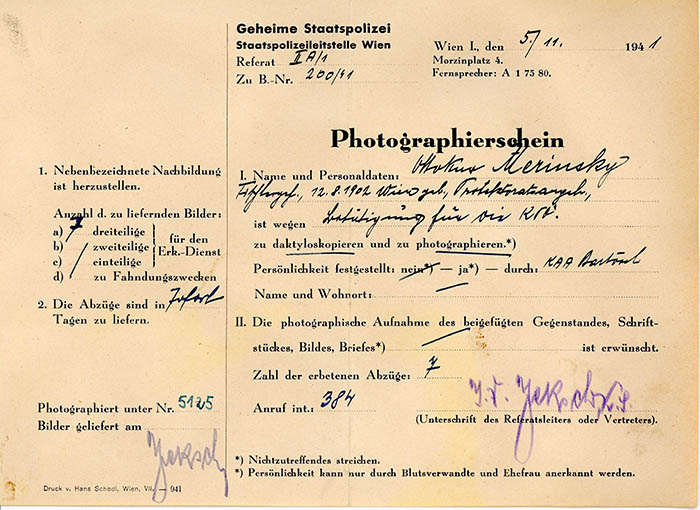 Geheime Staatspolizei
Staatspolizeileitstelle Wien
Referat II A/1
Zu B.-Nr. 200/41
Wien I., den 5/11. 1941
Morzinplatz 4.
Fernsprecher: A 1 75 80.
Photographierschein
1. Nebenbezeichnete Nachbildung
ist herzustellen.
Anzahl d. zu liefernden Bilder:
a) 7 dreiteilige
b) zweiteilige
c) einteilige
d) zu Fahndungszwecken
für den
Erk.-Dienst
2. Die Abzüge sind in sofort
Tagen zu liefern.
Photographiert unter Nr. 5125
Bilder geliefert am
Jeksch
Druck v. Hans Schedl, Wien, VII. — 941
I. Name und Personaldaten: Ottokar Merinsky
12.8.1902 Wien geb., Protektoratsangeh.,
ist wegen Betätigung für die KPÖ.
zu daktyloskopieren und zu photographieren.*)
Persönlichkeit festgestellt: nein*) — ja*) — durch: KAA
Name und Wohnort: —
II. Die photographische Aufnahme des beigefügten Gegenstandes, Schrift-
stückes, Bildes, Briefes*) — ist erwünscht.
Zahl der erbetenen Abzüge: 7
Anruf int.: 384
I.V. Jeksch
(Unterschrift des Referatsleiters oder Vertreters).
*) Nichtzutreffendes streichen.
*) Persönlichkeit kann nur durch Blutsverwandte und Ehefrau anerkannt werden.